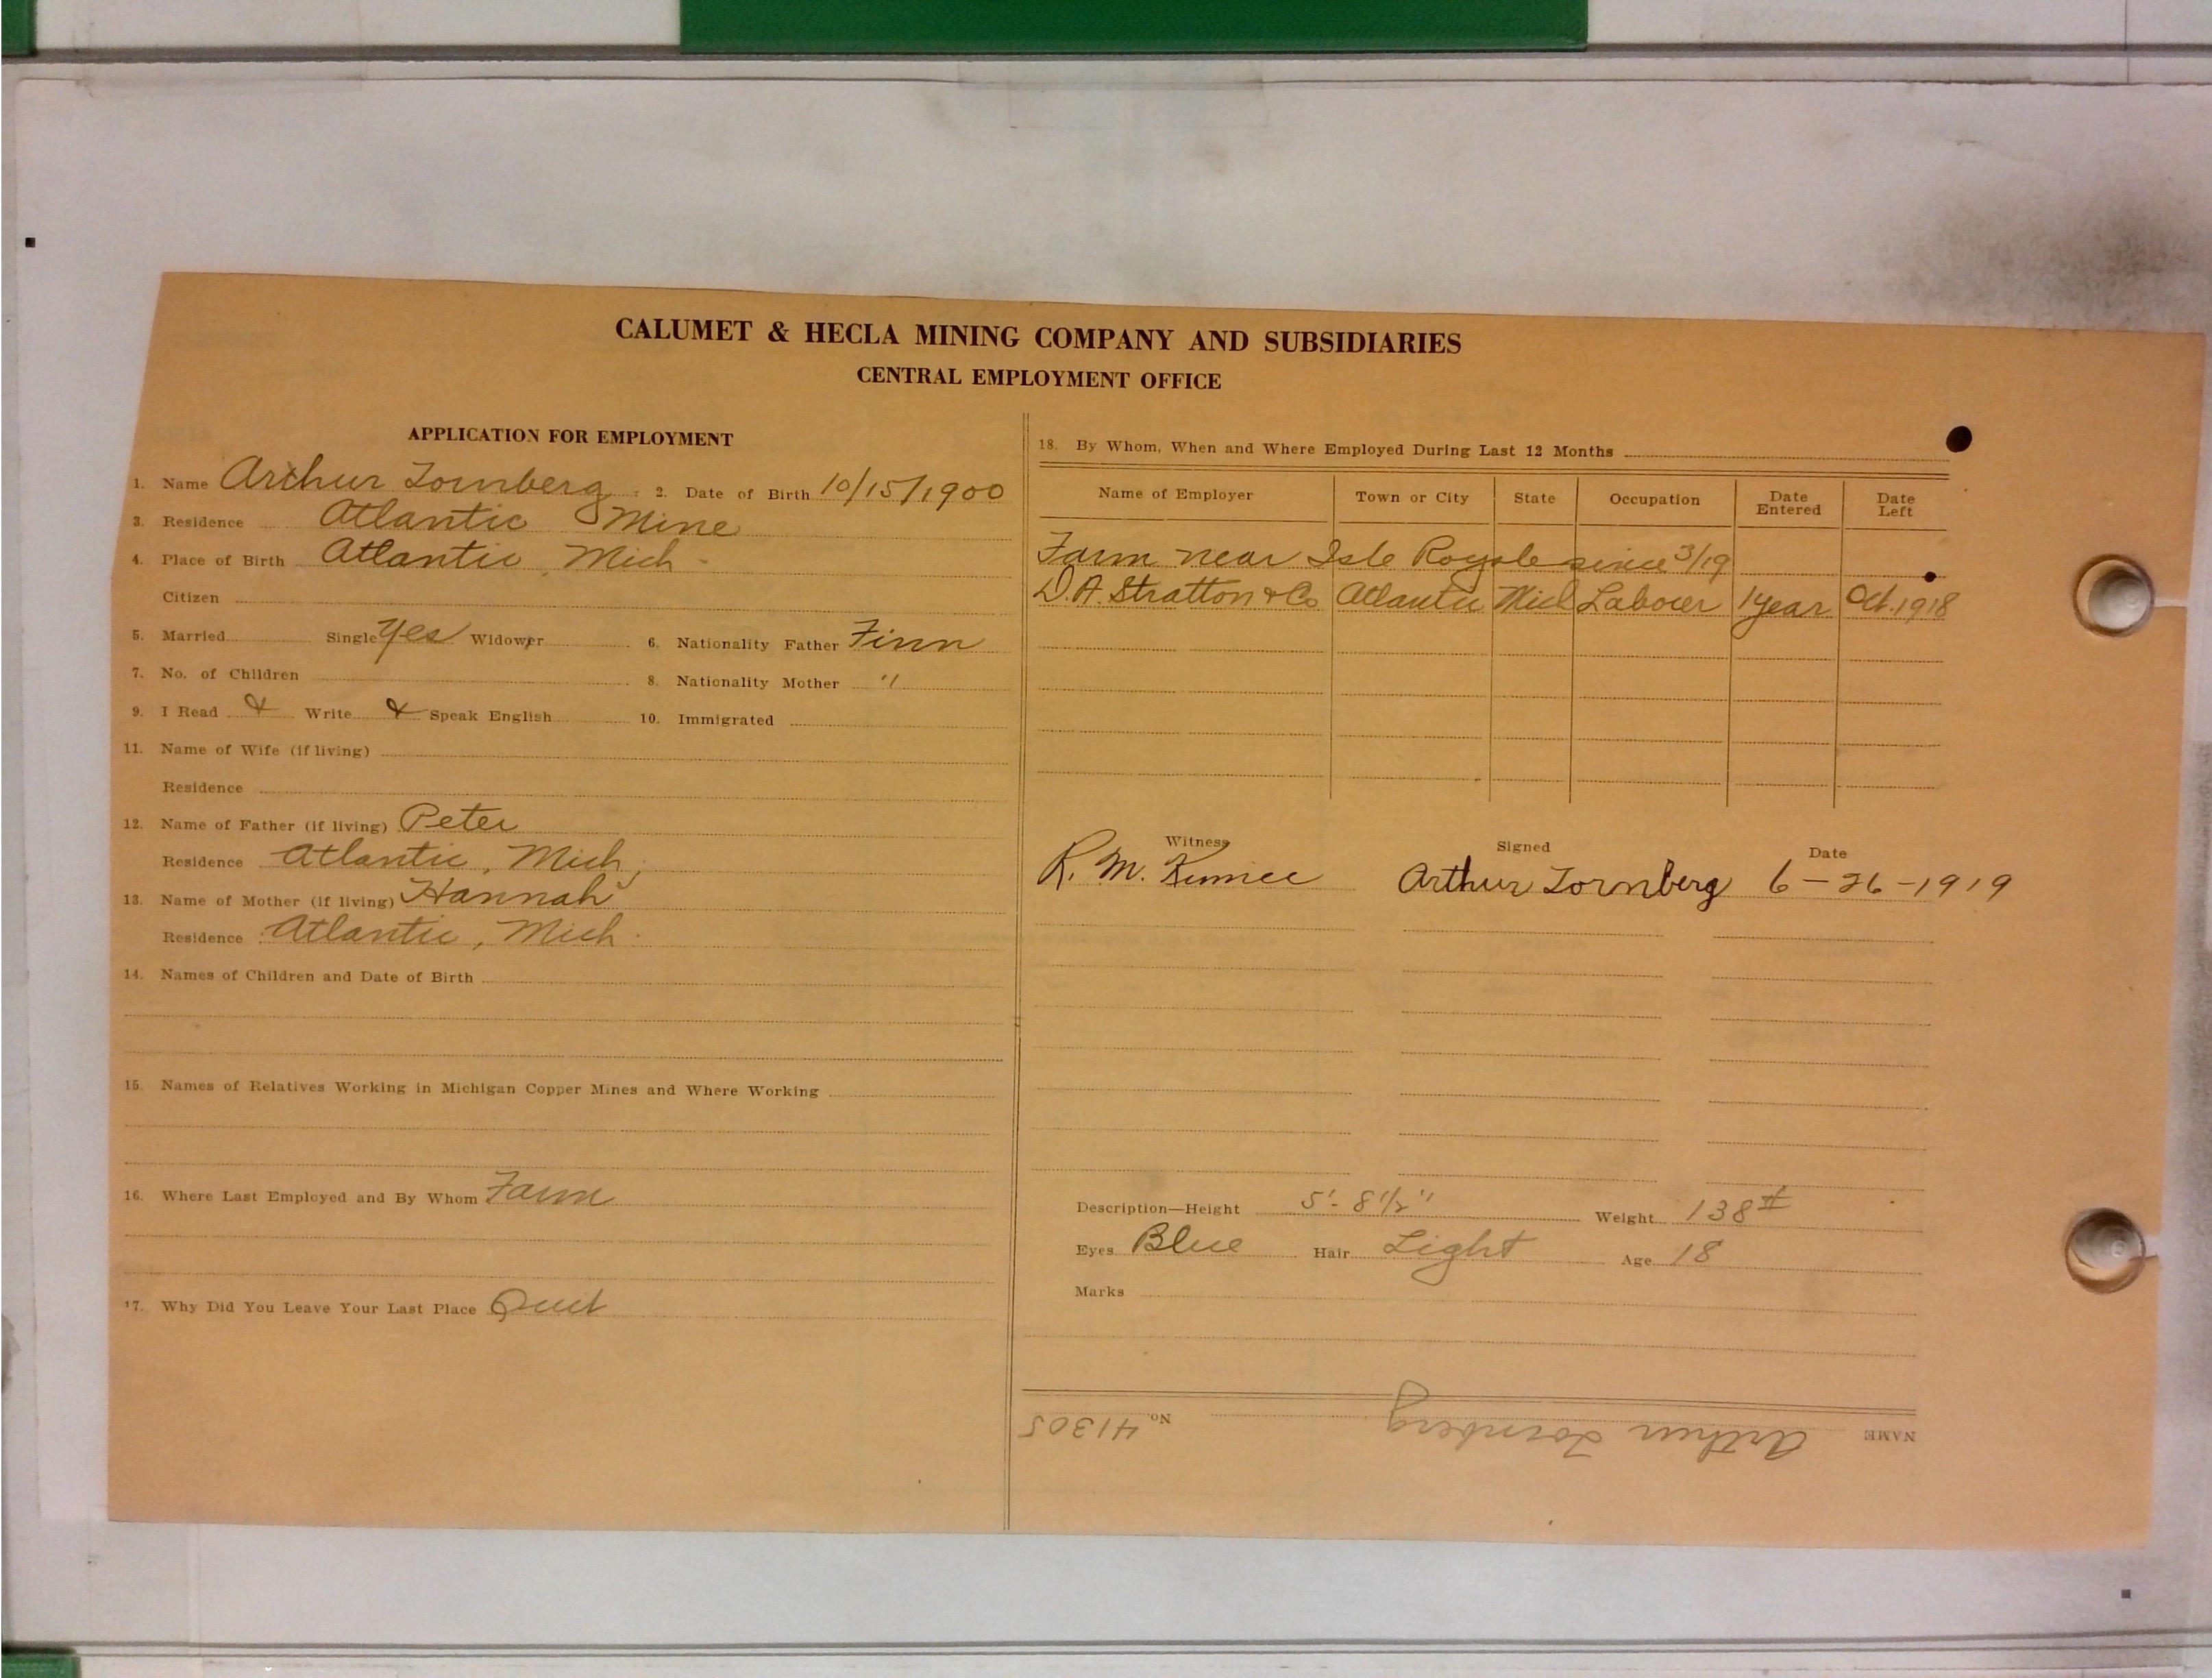 CALUMET & HECLA MINING COMPANY AND SUBSIDIARIES
CENTRAL EMPLOYMENT OFFICE
APPLICATION FOR EMPLOYMENT
1. Name Arthur Tornberg 2. Date of Birth 10/15/1900
3. Residence Atlantic Mine
4. Place of Birth Atlantic, Mich
Citizen
5. Married Single Yes Widower 6. Nationality Father Finn
7. No. of Children 8. Nationality Mother "
9. I Read & Write & Speak English 10. Immigrated
11. Name of Wife (if living)
Residence
12. Name of Father (if living) Peter
Residence Atlantic, Mich,
13. Name of Mother (if living) Hannah
Residence Atlantic, Mich.
14. Names of Children and Date of Birth
15. Names of Relatives Working in Michigan Copper Mines and Where Working
16. Where Last Employed and By Whom Farm
17. Why Did You Leave Your Last Place Quit
18. By Whom, When and Where Employed During Last 12 Months
Name of Employer Town or City State Occupation Date Entered Date Left
Farm near Isle Royale since 3/19
D. A. Stratton & Co Atlantic Mich Labourer 1 year Oct. 1918
Witness Signed Date
R. M. Arthur Tornberg 6-26-1919
Description—Height 5'-8 1/2" Weight 138#
Eyes Blue Hair Light Age 18
Marks
NAME Arthur Tornberg No. 41305